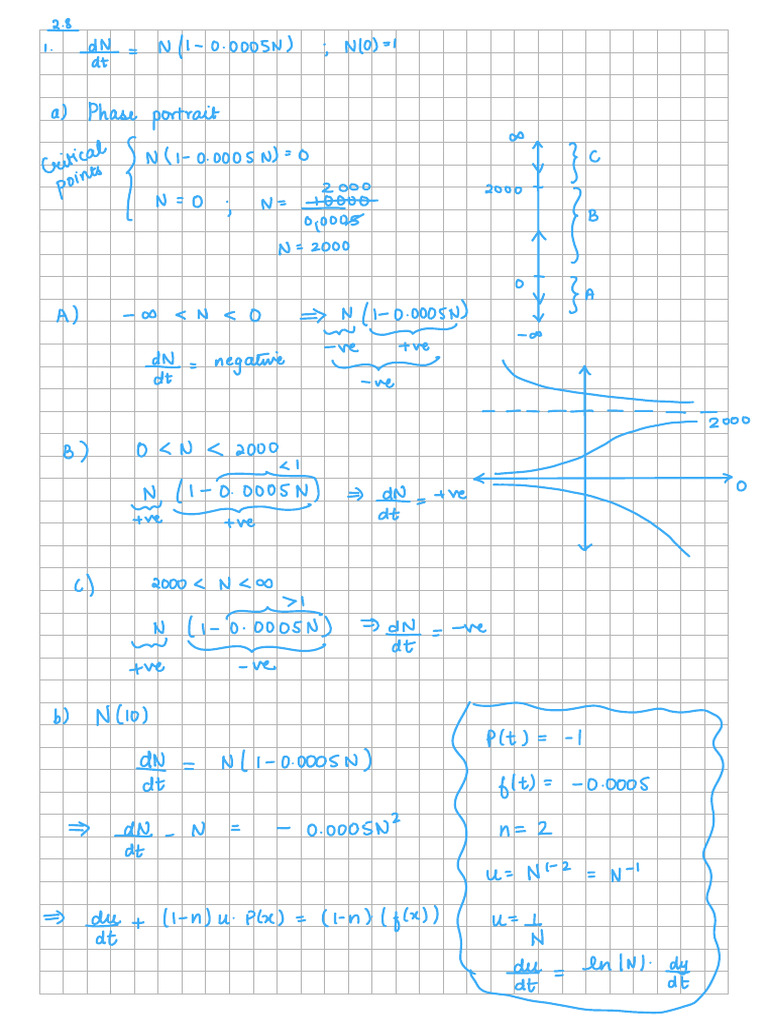 2.8
1. dN/dt = N(1-0.0005N) ; N(0)=1
a) Phase portrait
Critical points
N(1-0.0005N)=0
N = 0 ; N = 2000 10000/0,0005
N = 2000
∞
C
2000
B
0
A
-∞
A) -∞ < N < 0 ⇒ N(1-0.0005N)
-ve +ve
-ve
dN/dt = negative
2000
0
B) 0 < N < 2000
<1
N (1-0.0005N) ⇒ dN/dt = +ve
+ve +ve
C) 2000 < N < ∞
>1
N (1-0.0005N) ⇒ dN/dt = -ve
+ve -ve
b) N(10)
dN/dt = N(1-0.0005N)
⇒ dN/dt - N = - 0.0005N²
⇒ du/dt + (1-n) u. P(x) = (1-n) (f(x))
P(t) = -1
f(t) = -0.0005
n = 2
u = N¹⁻² = N⁻¹
u = 1/N
du/dt = ln(N). dy/dt